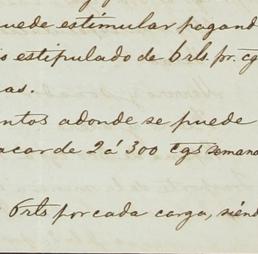 puede estimular pagand
s estipulado de 6 rls. pr. cgs
as.
ntos adonde se puede
acar de 2 á 300 cgs semana
6 rls por cada carga, siénd